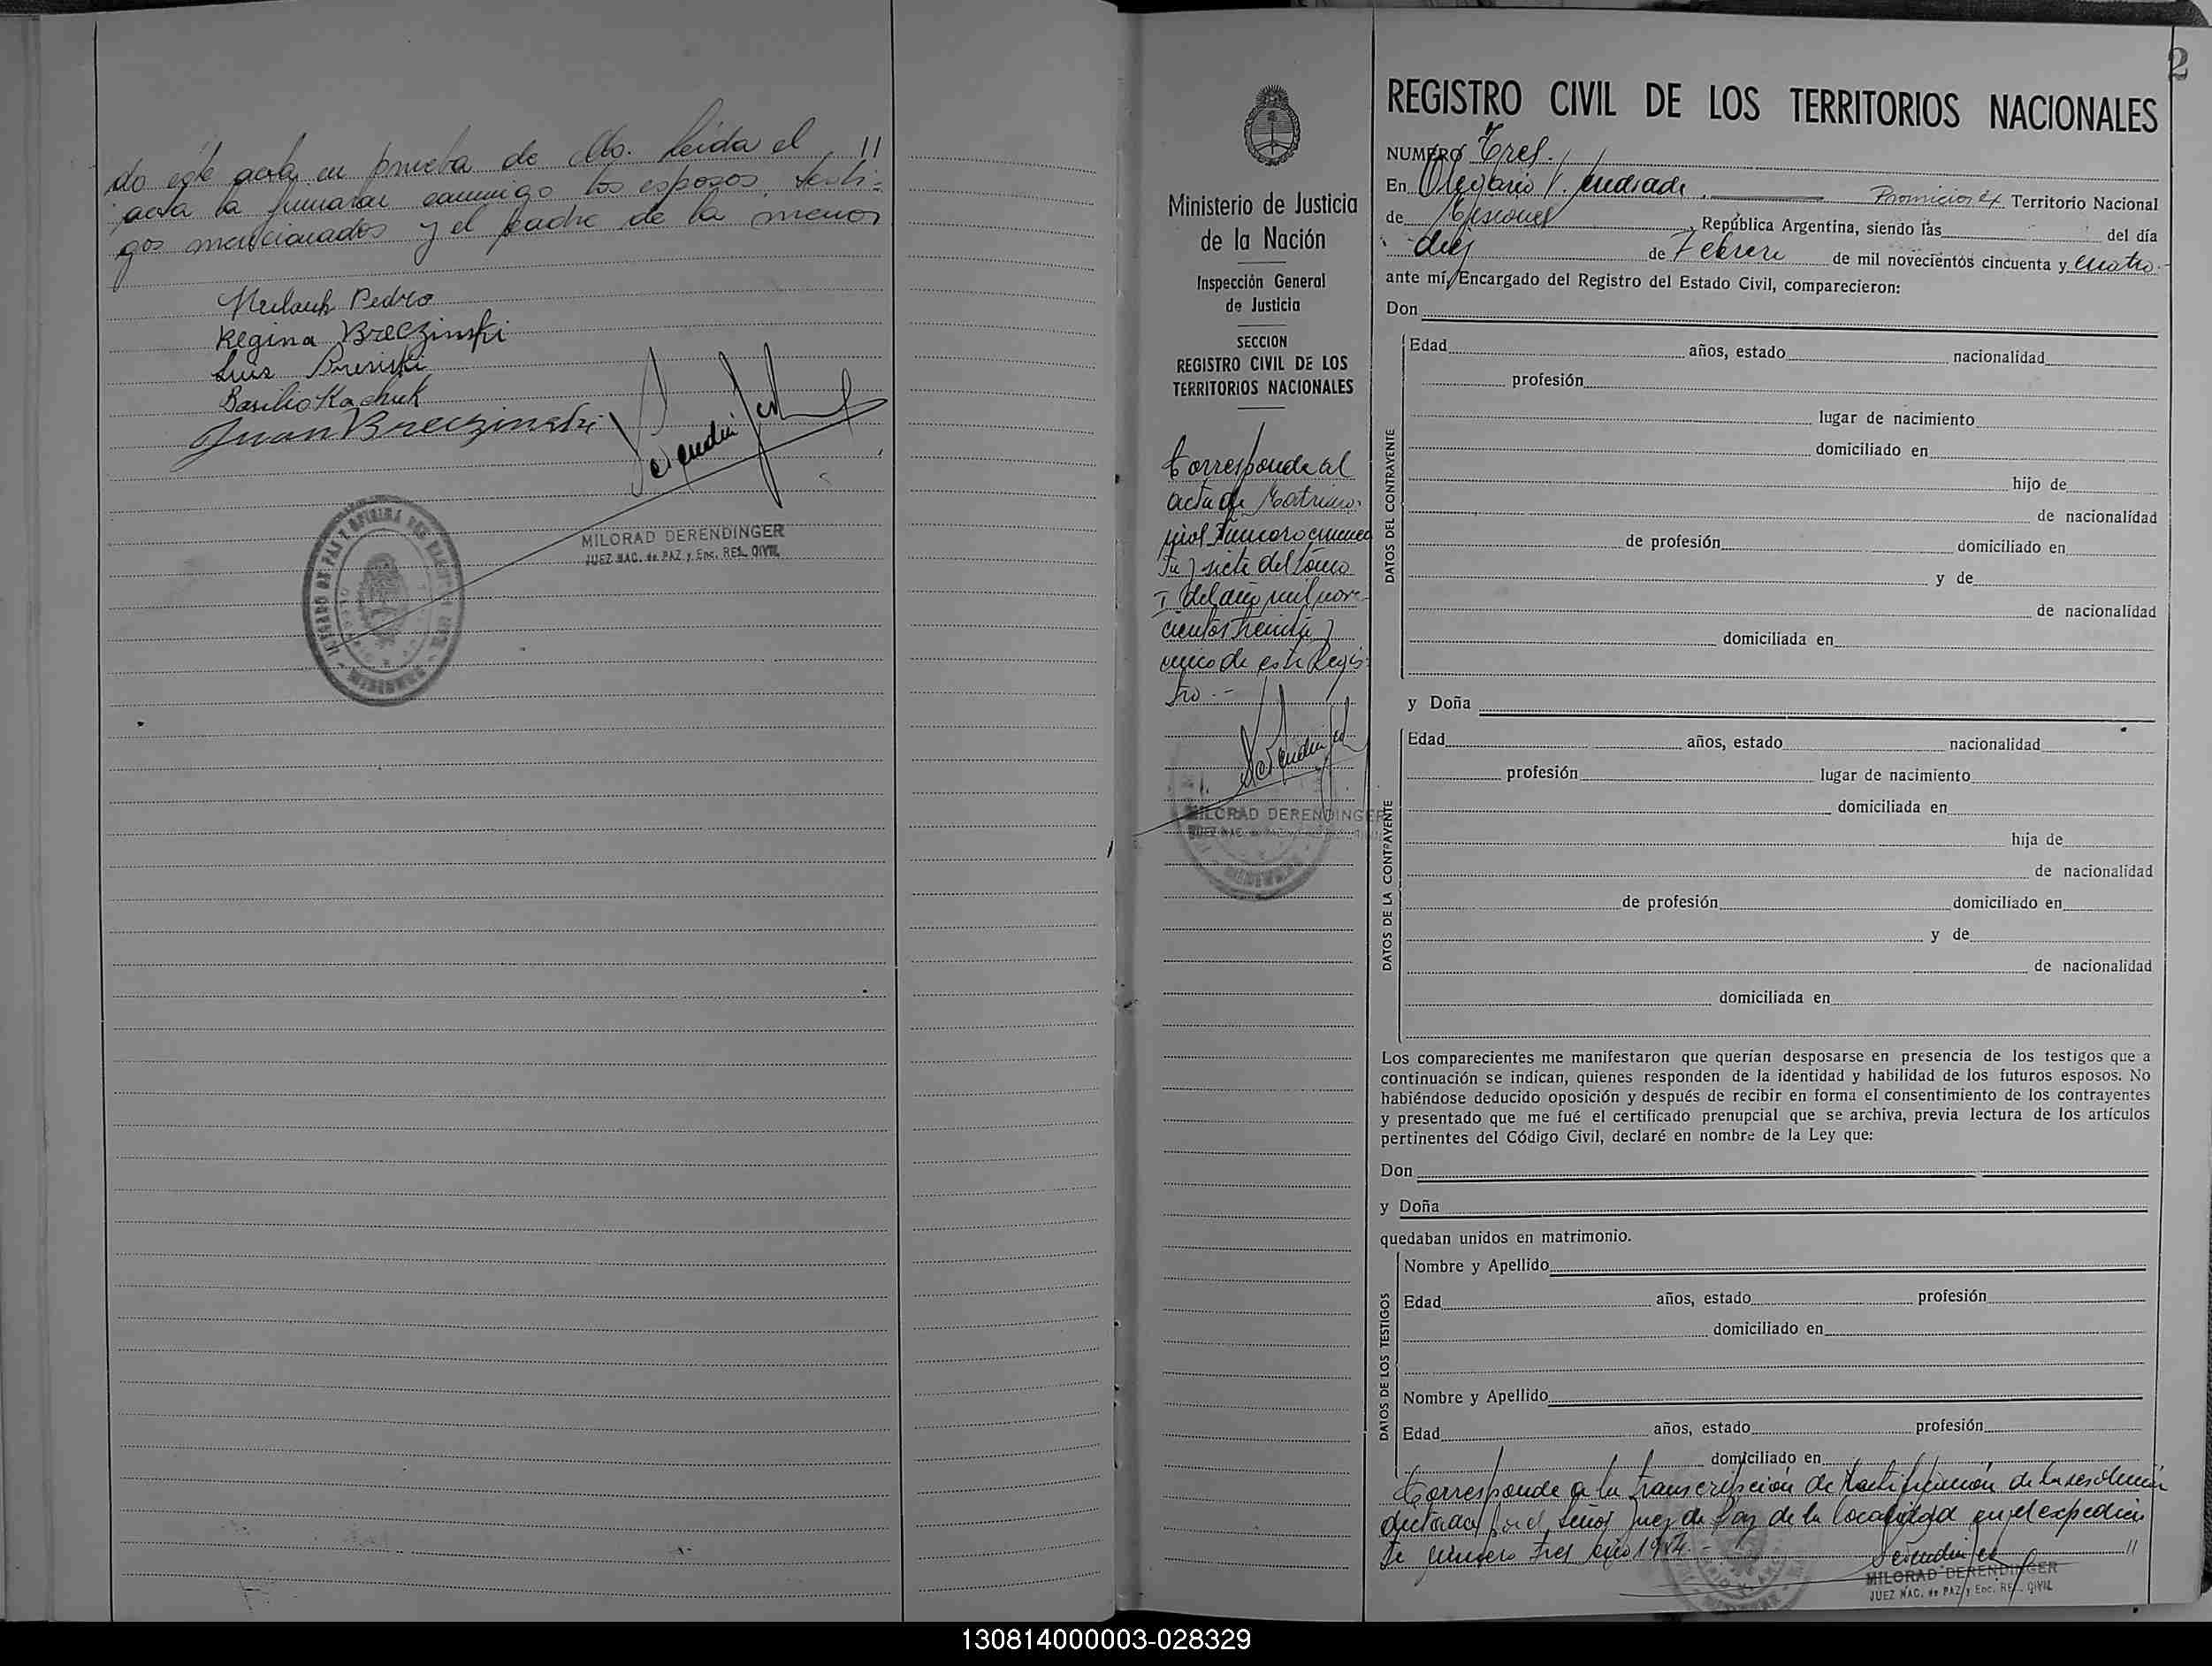 do este acta en prueba de ello. Leida el //
acta la firmaron conmigo los esposos, testi=
gos mencionados y el padre de la menor
Pedro
Regina Breczinski
Luis
Basilio Kachuk
Juan Breczinski
MILORAD DERENDINGER
JUEZ NAC. de PAZ y Enc. REG. CIVIL
2
Ministerio de Justicia
de la Nación
Inspección General
de Justicia
SECCION
REGISTRO CIVIL DE LOS
TERRITORIOS NACIONALES
Corresponde al
acta de Matrimo-
nios Número cincuen
ta y siete del tomo
I del año mil nove-
cientos treinta y
cinco de este Regis-
tro.-
MILORAD DERENDINGER
REGISTRO CIVIL DE LOS TERRITORIOS NACIONALES
NUMERO Tres.
En Olegario V. Andrade, Provincia ex Territorio Nacional
de Misiones, República Argentina, siendo las del día
diez de Febrero de mil novecientos cincuenta y cuatro.-
ante mí, Encargado del Registro del Estado Civil, comparecieron:
Don
DATOS DEL CONTRAYENTE
Edad años, estado nacionalidad
profesión
lugar de nacimiento
domiciliado en
hijo de
de nacionalidad
de profesión domiciliado en
y de
de nacionalidad
domiciliada en
y Doña
DATOS DE LA CONTRAYENTE
Edad años, estado nacionalidad
profesión lugar de nacimiento
domiciliada en
hija de
de nacionalidad
de profesión domiciliado en
y de
de nacionalidad
domiciliada en
Los comparecientes me manifestaron que querían desposarse en presencia de los testigos que a
continuación se indican, quienes responden de la identidad y habilidad de los futuros esposos. No
habiéndose deducido oposición y después de recibir en forma el consentimiento de los contrayentes
y presentado que me fué el certificado prenupcial que se archiva, previa lectura de los artículos
pertinentes del Código Civil, declaré en nombre de la Ley que:
Don
y Doña
quedaban unidos en matrimonio.
DATOS DE LOS TESTIGOS
Nombre y Apellido
Edad años, estado profesión
domiciliado en
Nombre y Apellido
Edad años, estado profesión
domiciliado en
Corresponde a la transcripción de Rectificación de la resolución
dictada por el Señor Juez de Paz de la localidad en el expedien
te número tres año 1954.- //
MILORAD DERENDINGER
JUEZ NAC. de PAZ y Enc. REG. CIVIL
130814000003-028329